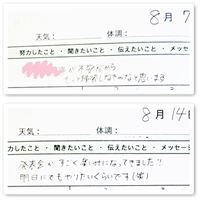 8月 7
天気: 体調:
努力したこと ・ 聞きたいこと ・ 伝えたいこと ・ メッセ
が不安だから
なのかなと思います
8月14日
天気: 体調:
力したこと ・ 聞きたいこと ・ 伝えたいこと ・ メッセージ
発表会がすごく楽しみになってきました!!
明日にでもやりたいくらいです(笑)